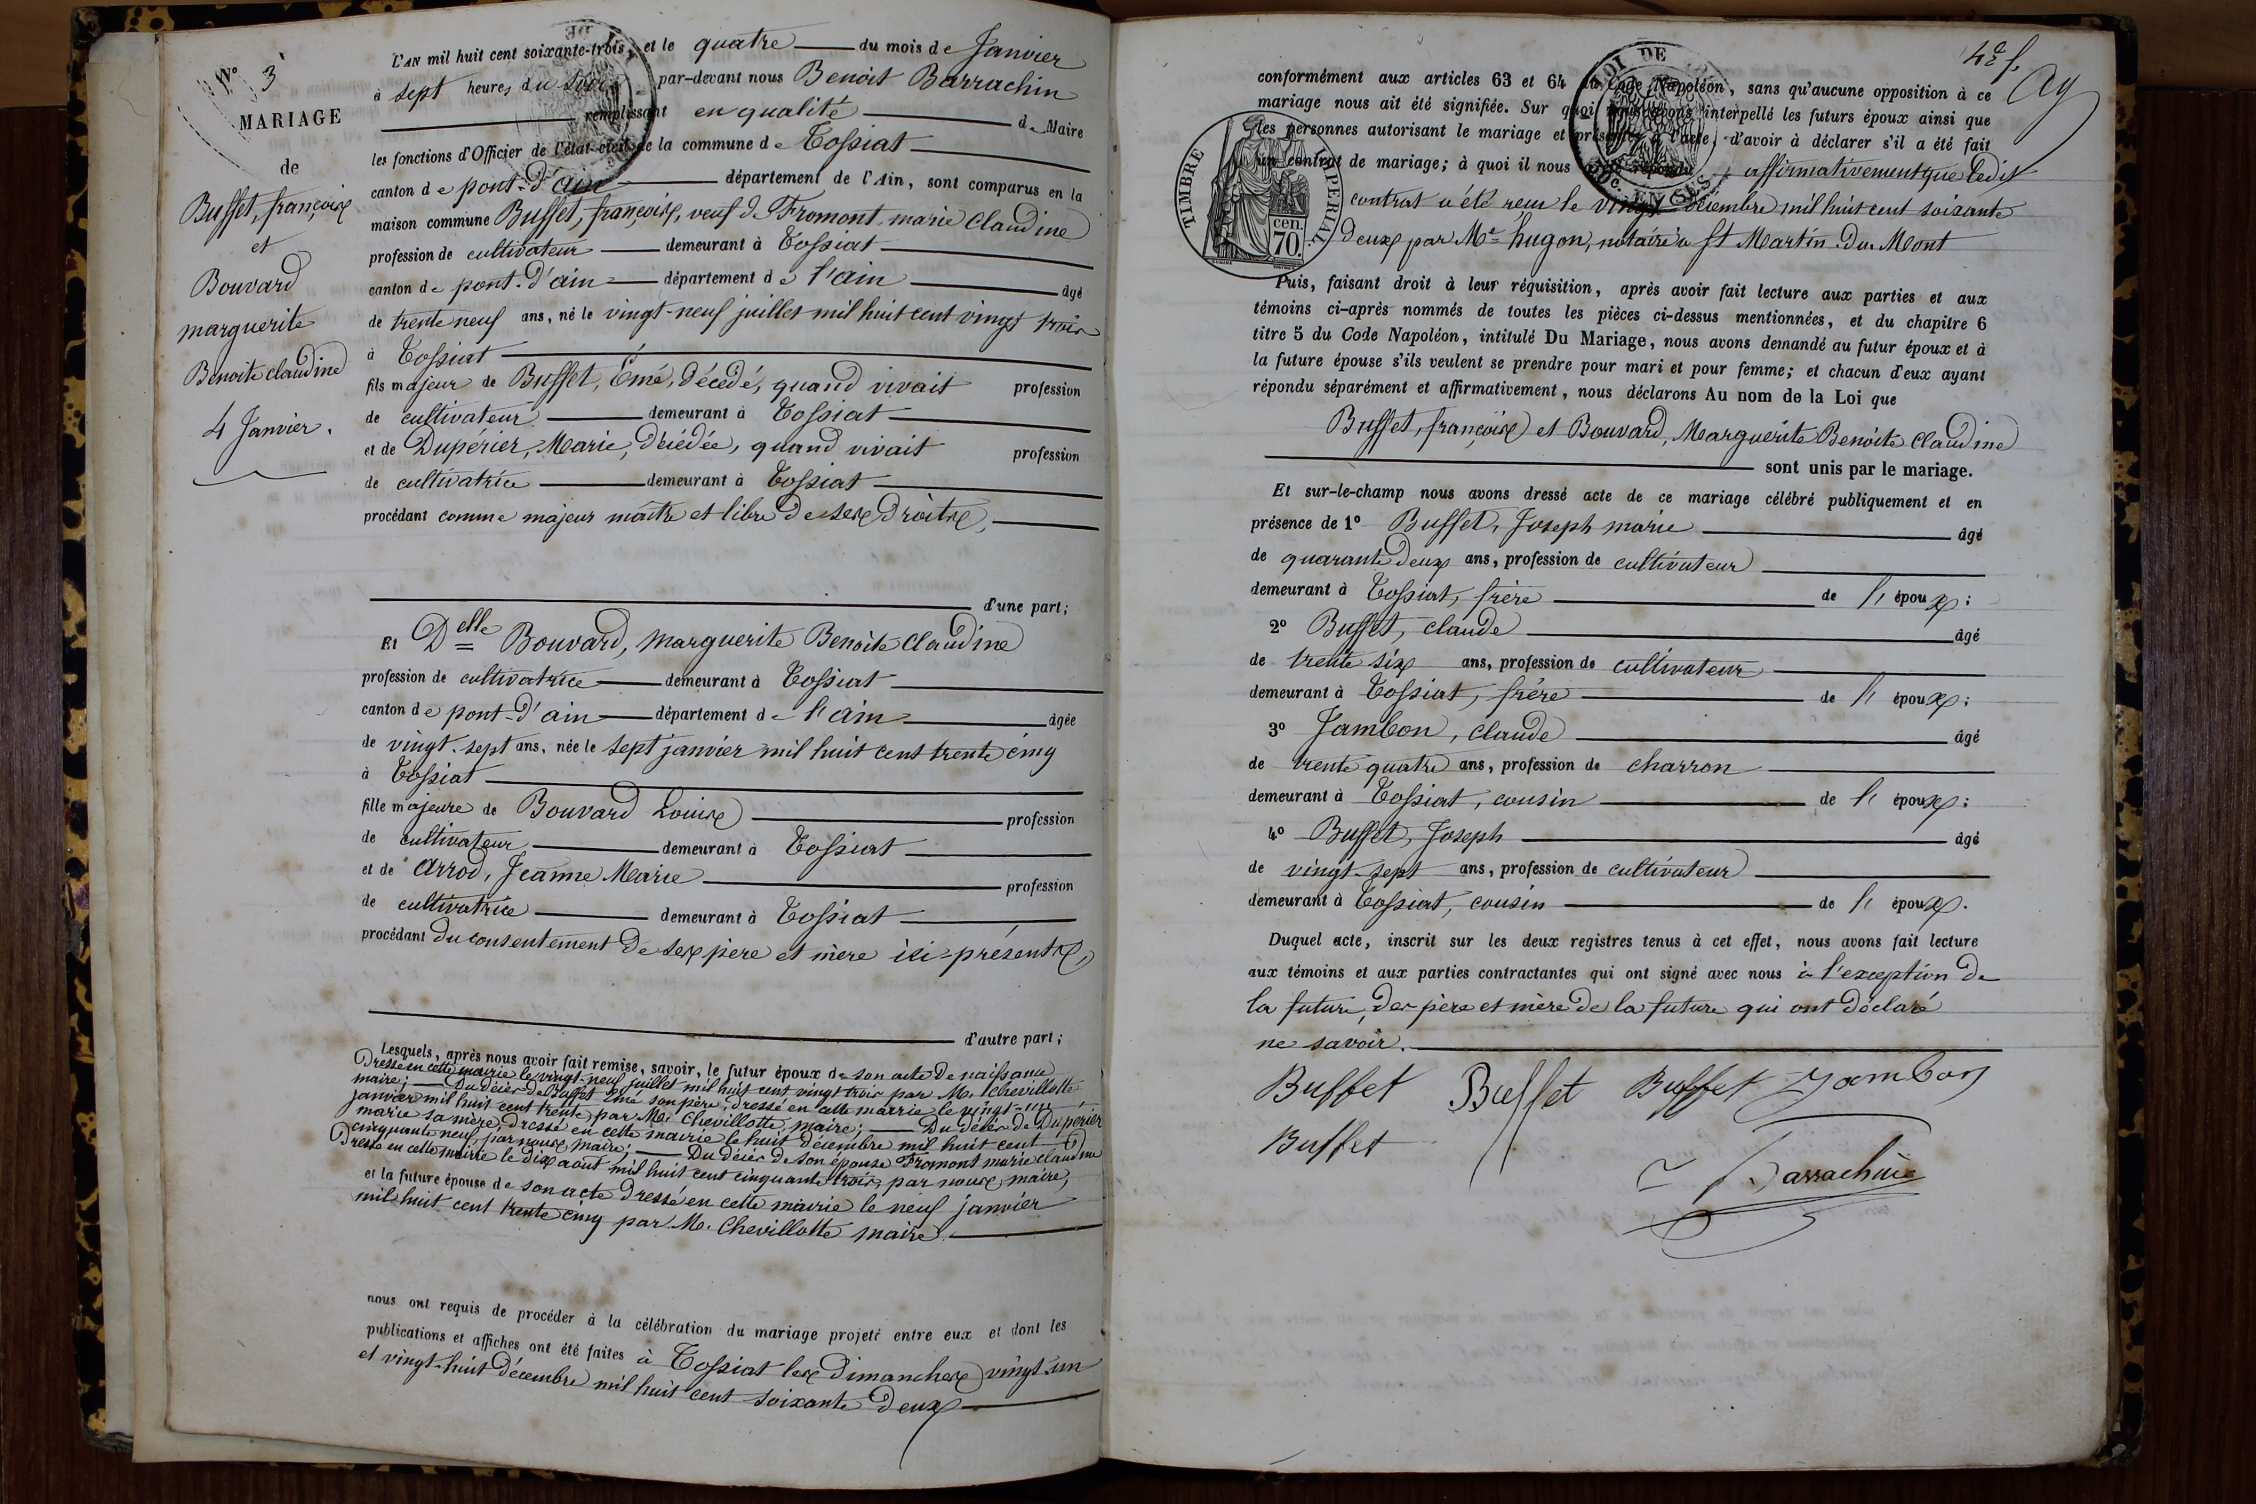 N° 3
MARIAGE
de
Buffet, françois
et
Bouvard
marguerite
Benoite claudine
4 Janvier.
L'AN mil huit cent soixante-trois, et le quatre du mois de Janvier
à sept heures du soir par-devant nous Benoit Barrachin
remplissant en qualité de Maire
les fonctions d'Officier de l'état civil de la commune de Tossiat
canton de pont-d'ain département de l'Ain, sont comparus en la
maison commune Buffet, françois, veuf de Fromont marie claudine
profession de cultivateur demeurant à Tossiat
canton de pont-d'ain département de l'ain âgé
de trente neuf ans, né le vingt-neuf juillet mil huit cent vingt trois
à Tossiat
fils majeur de Buffet, Emé, décédé, quand vivait profession
de cultivateur demeurant à Tossiat
et de Duperier, Marie, décédée, quand vivait profession
de cultivatrice demeurant à Tossiat
procédant comme majeur maitre et libre de ses droits,
d'une part;
Et Delle Bouvard, marguerite Benoite claudine
profession de cultivatrice demeurant à Tossiat
canton de pont-d'ain département de l'ain âgée
de vingt-sept ans, née le sept janvier mil huit cent trente cinq
à Tossiat
fille majeure de Bouvard Louis profession
de cultivateur demeurant à Tossiat
et de arrod, Jeanne Marie profession
de cultivatrice demeurant à Tossiat
procédant du consentement de ses père et mère ici présents,
d'autre part;
Lesquels, après nous avoir fait remise, savoir, le futur époux de son acte de naissance
Dressé en cette mairie le vingt-neuf juillet mil huit cent vingt trois par M. chevillotte
maire; Du décès de Buffet Emé son père, dressé en cette mairie le vingt-un
janvier mil huit cent trente par M. chevillotte, maire; Du décès de Duperier
marie sa mère, dressé en cette mairie le huit décembre mil huit cent
cinquante neuf, par nous maire; Du décès de son épouse Fromont marie claudine
Dressé en cette mairie le dix aout mil huit cent cinquante trois, par nous, maire,
et la future épouse de son acte dressé en cette mairie le neuf janvier
mil huit cent trente cinq par M. Chevillotte maire.
nous ont requis de procéder à la célébration du mariage projeté entre eux et dont les
publications et affiches ont été faites à Tossiat les dimanches vingt-un
et vingt-huit décembre mil huit cent soixante deux
conformément aux articles 63 et 64 du Code Napoléon, sans qu'aucune opposition à ce
mariage nous ait été signifiée. Sur quoi nous avons interpellé les futurs époux ainsi que
les personnes autorisant le mariage et présentes à l'acte, d'avoir à déclarer s'il a été fait
un contrat de mariage; à quoi il nous a été répondu affirmativement que ledit
contrat a été reçu le vingt décembre mil huit cent soixante
deux par Me hugon, notaire à St Martin-du-Mont
TIMBRE IMPERIAL
cen.
70.
Puis, faisant droit à leur réquisition, après avoir fait lecture aux parties et aux
témoins ci-après nommés de toutes les pièces ci-dessus mentionnées, et du chapitre 6
titre 5 du Code Napoléon, intitulé Du Mariage, nous avons demandé au futur époux et à
la future épouse s'ils veulent se prendre pour mari et pour femme; et chacun d'eux ayant
répondu séparément et affirmativement, nous déclarons Au nom de la Loi que
Buffet, françois et Bouvard, Marguerite Benoite claudine
sont unis par le mariage.
Et sur-le-champ nous avons dressé acte de ce mariage célébré publiquement et en
présence de 1° Buffet, Joseph marie âgé
de quarante deux ans, profession de cultivateur
demeurant à Tossiat, frère de l' époux;
2° Buffet, claude âgé
de trente six ans, profession de cultivateur
demeurant à Tossiat, frère de l' époux;
3° Jambon, claude âgé
de trente quatre ans, profession de charron
demeurant à Tossiat, cousin de l' époux;
4° Buffet, Joseph âgé
de vingt-sept ans, profession de cultivateur
demeurant à Tossiat, cousin de l' époux.
Duquel acte, inscrit sur les deux registres tenus à cet effet, nous avons fait lecture
aux témoins et aux parties contractantes qui ont signé avec nous à l'exception de
la future, des père et mère de la future qui ont déclaré
ne savoir.
Buffet Buffet Buffet Jambon
Buffet
Barrachin